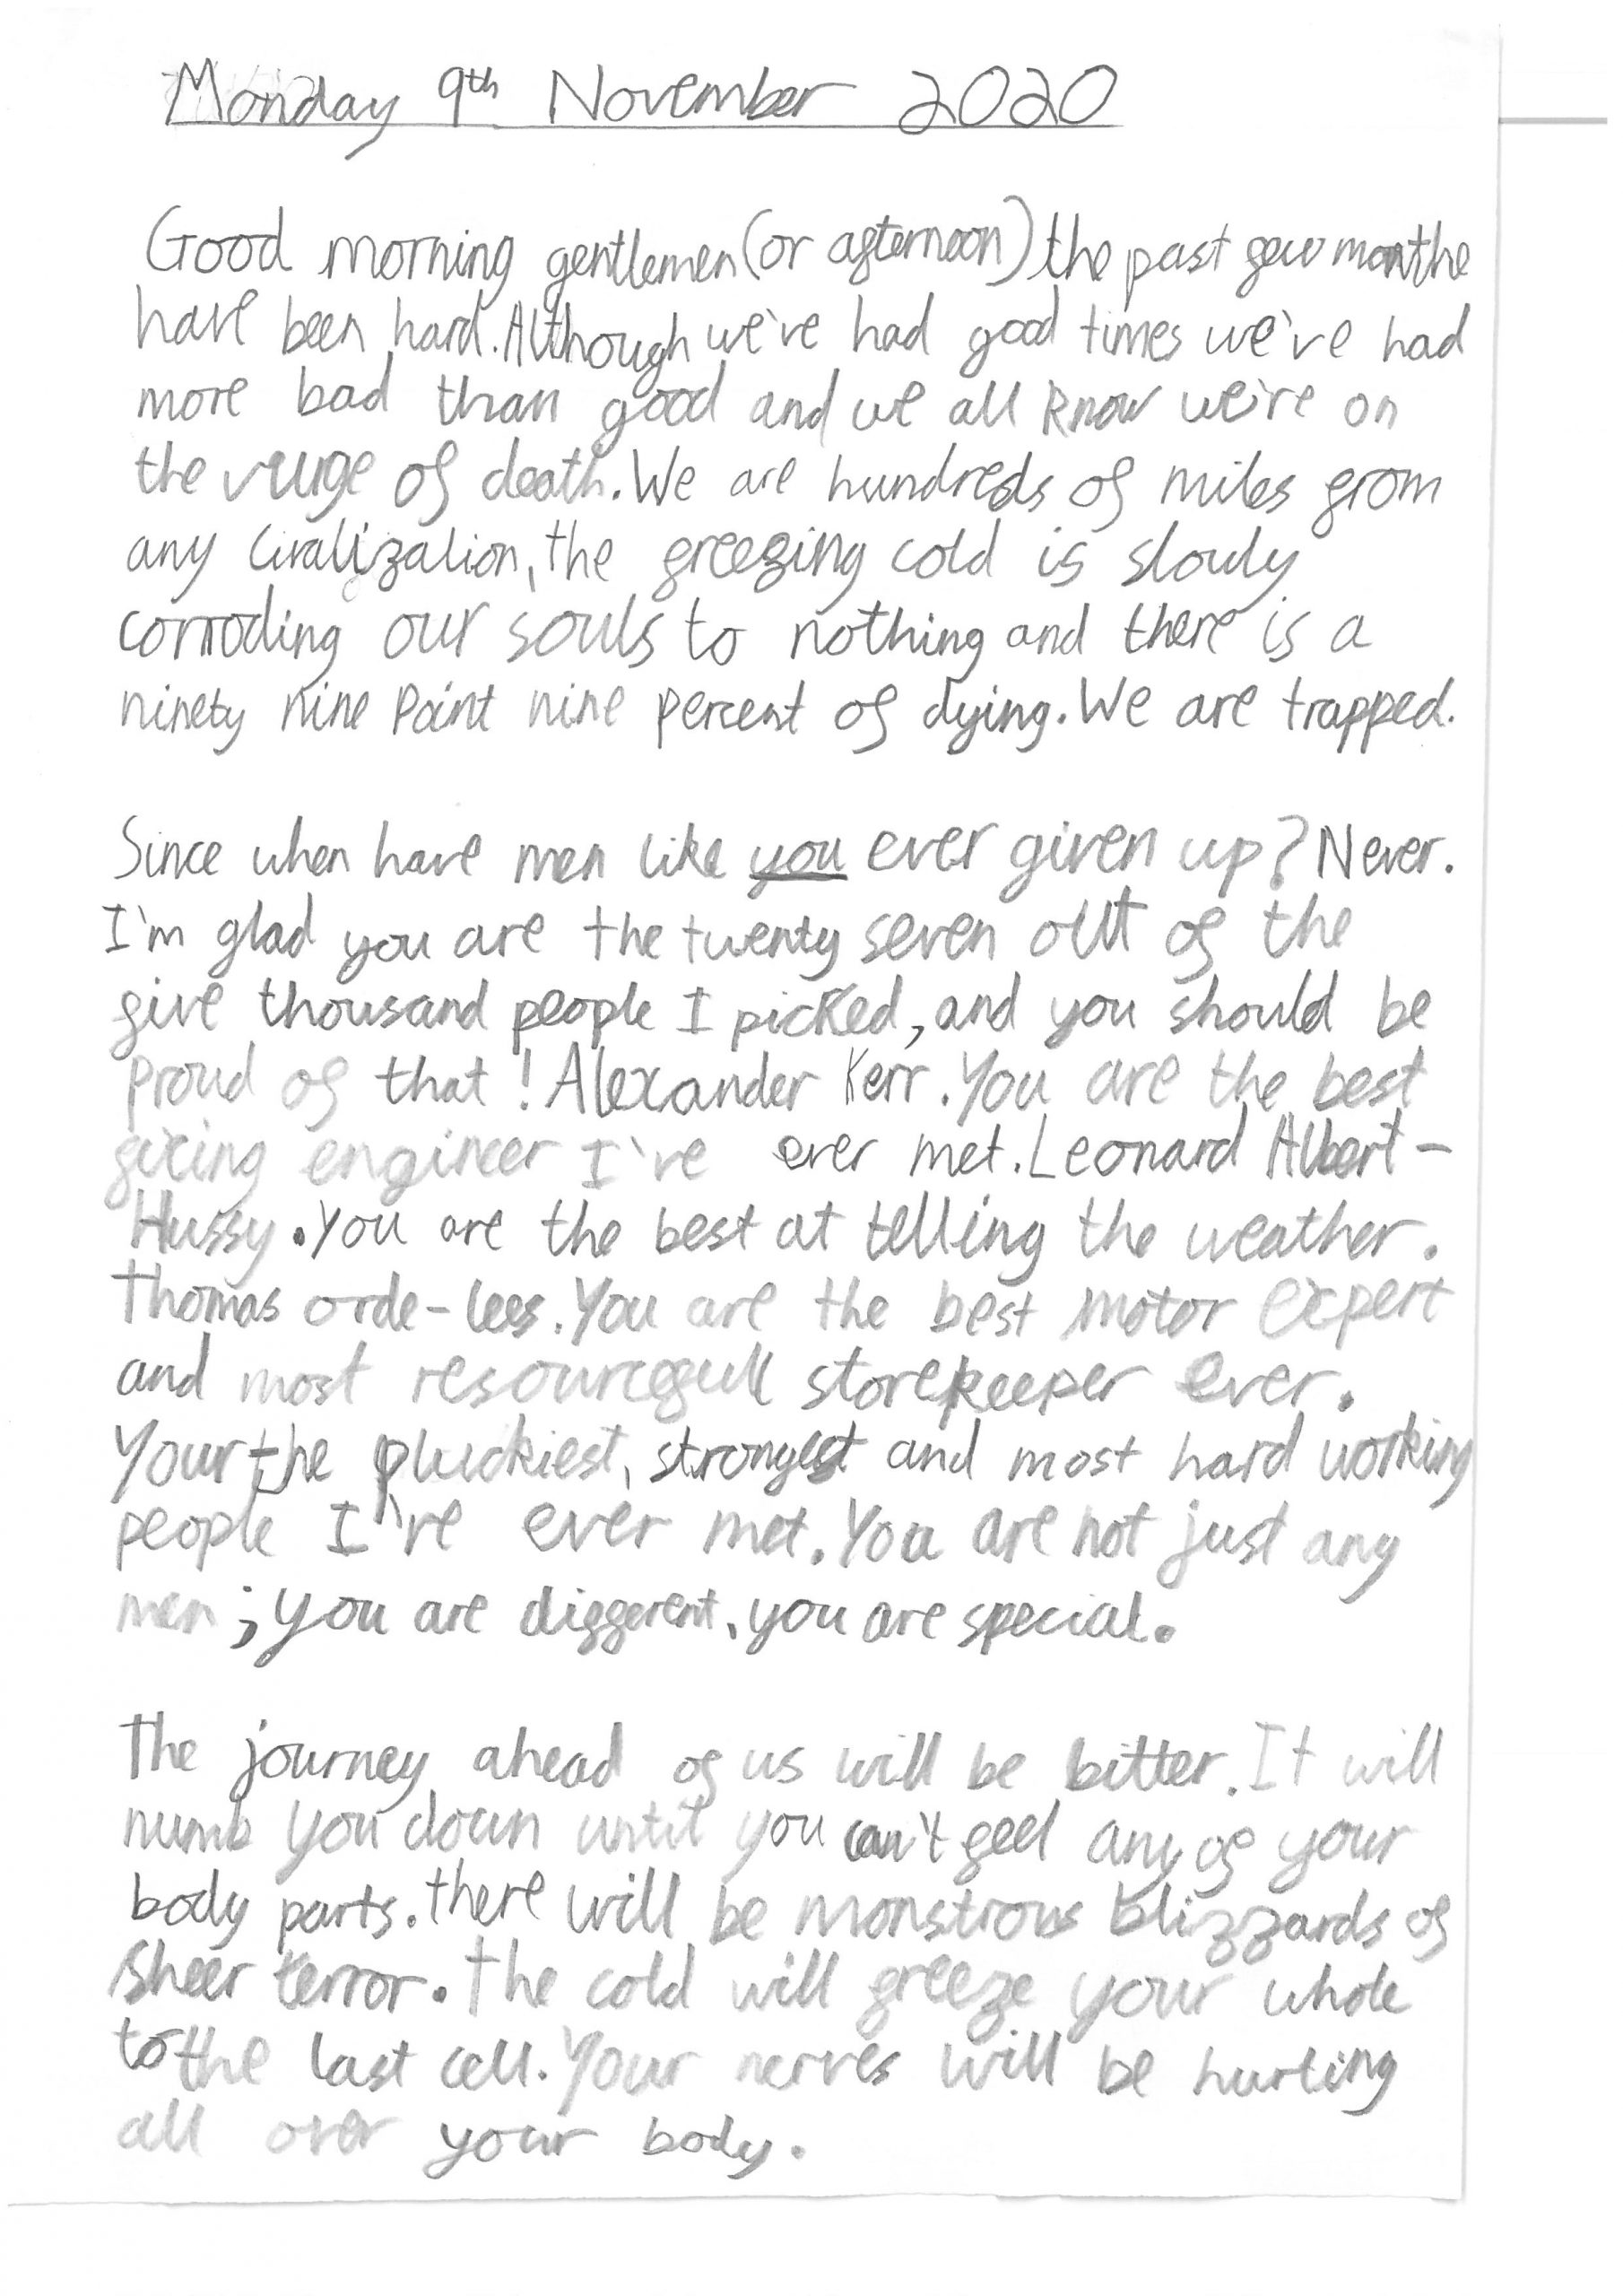 Monday 9th November 2020
Good morning gentlemen (or afternoon) the past few monthe
have been hard. Although we've had good times we've had
more bad than good and we all know we're on
the vurge of death. We are hundreds of miles from
any Civalization, the freezing cold is slowly
corroding our souls to nothing and there is a
ninety nine Point nine percent of dying. We are trapped.
Since when have men like you ever given up? Never.
I'm glad you are the twenty seven out of the
five thousand people I picked, and you should be
proud of that! Alexander Kerr. You are the best
fixing engineer I've ever met. Leonard Albert-
Hussy. You are the best at telling the weather.
Thomas orde-lees. You are the best motor expert
and most resourcefull storekeeper ever.
Your the pluckiest, strongest and most hard working
people I've ever met. You are not just any
men; you are different, you are special.
The journey ahead of us will be bitter. It will
numb you down until you can't feel any of your
body parts. There will be monstrous blizzards of
sheer terror. The cold will freeze your whole
to the last cell. Your nerves will be hurting
all over your body.